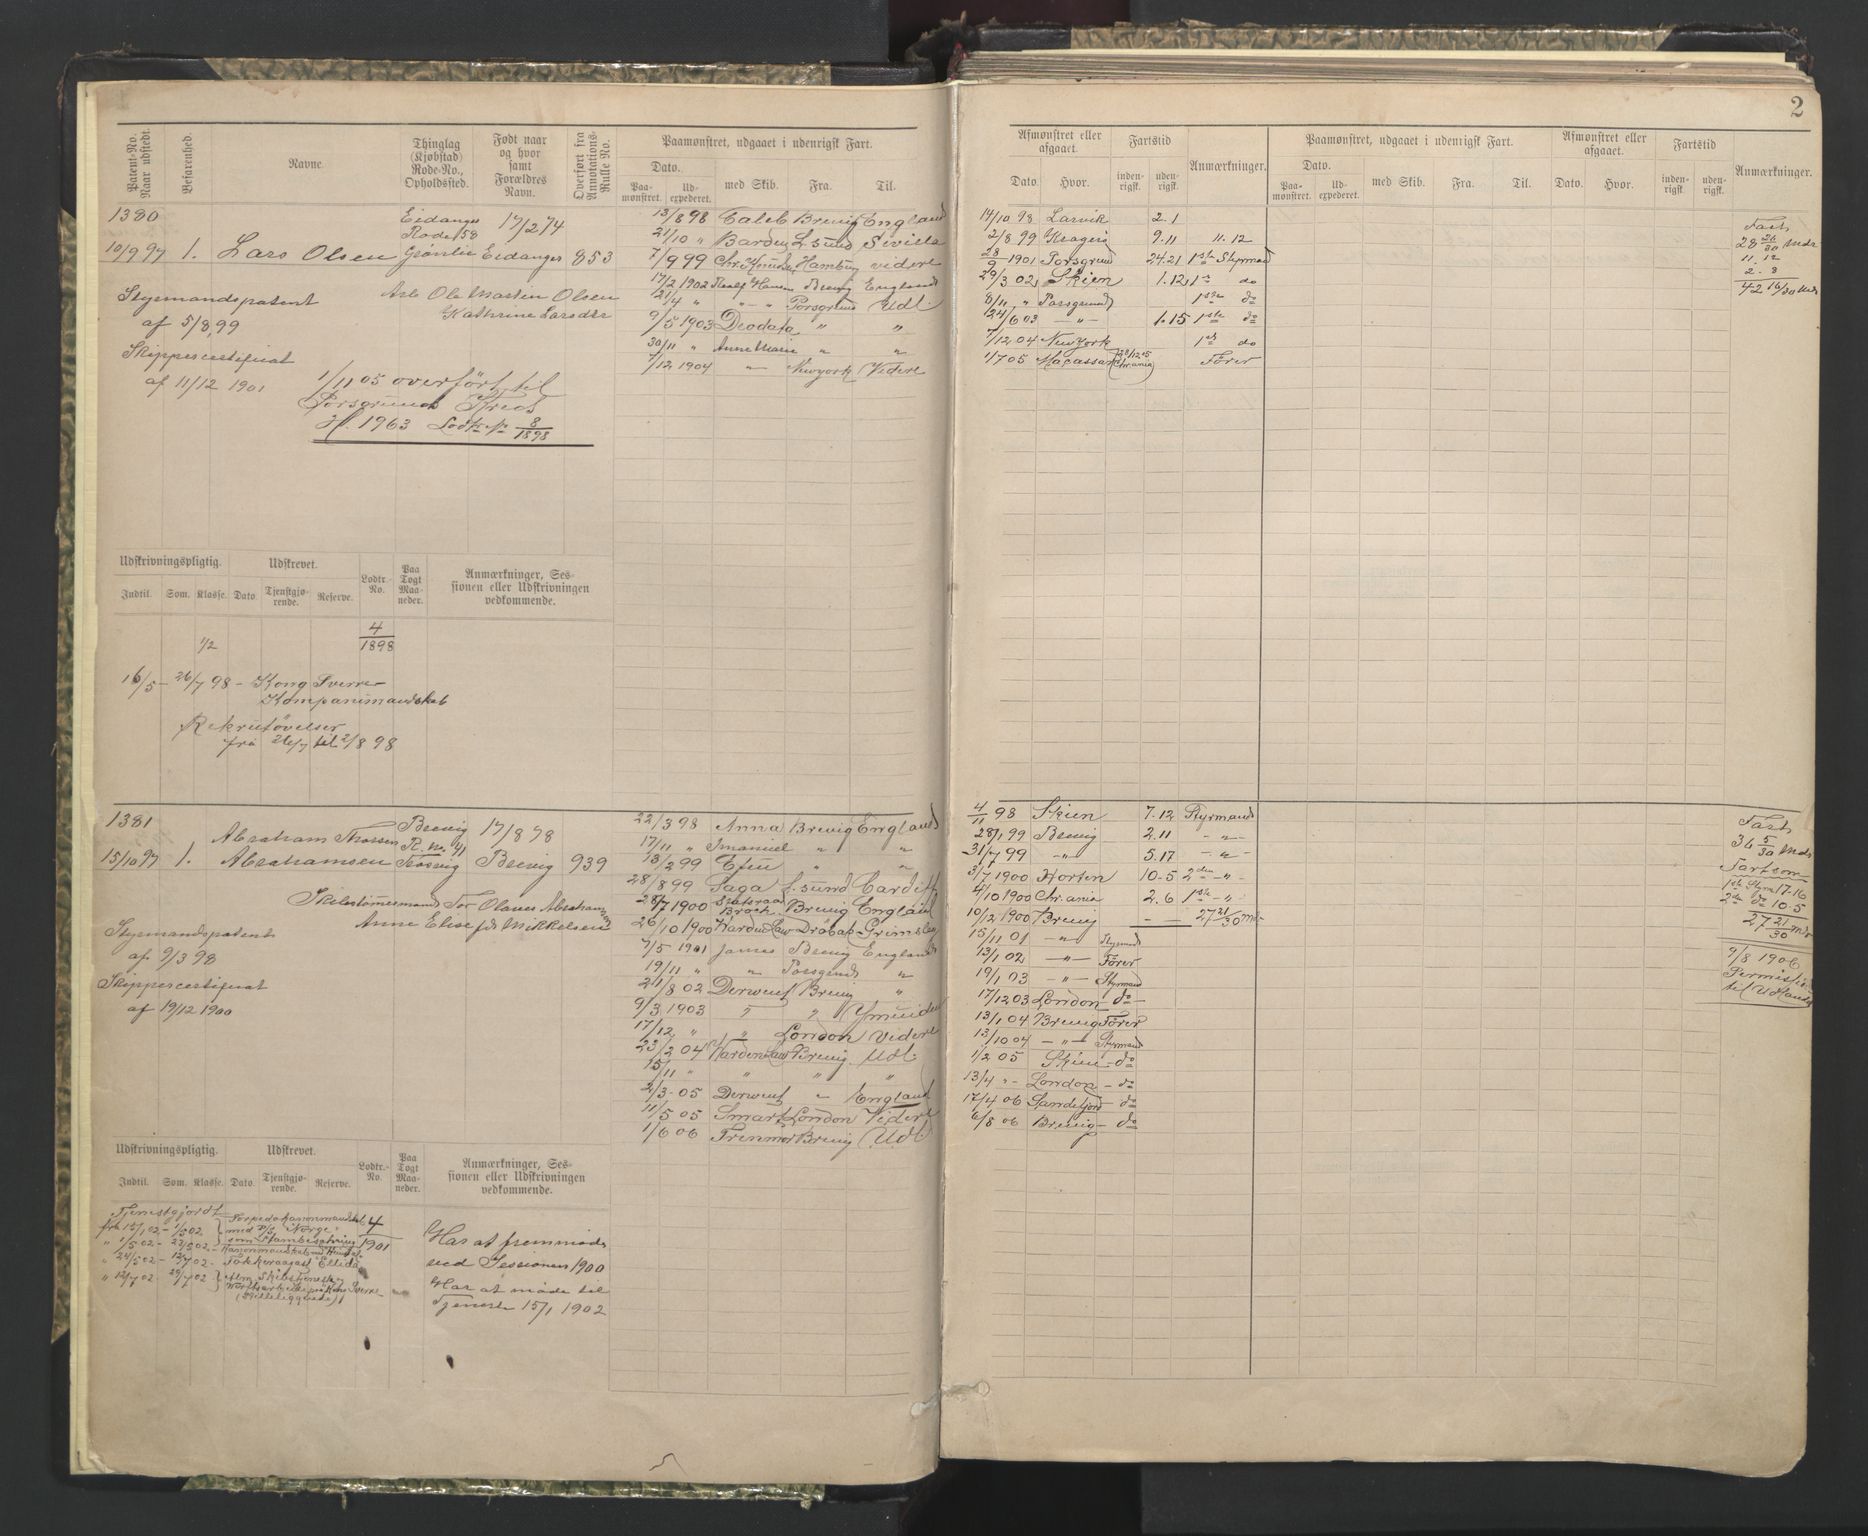 2
Patent-No. Naar udstedt.
Befarenhed.
Navne.
Thinglag (Kjøbstad) Rode-No., Opholdssted.
Født naar og hvor samt Forældres Navn.
Overført fra Annotations-Rulle No.
Paamønstret, udgaaet i udenrigsk Fart.
Dato.
Paamønstret. Udexpederet. med Skib. Fra. Til.
1380
10/9 97 1. Lars Olsen
Eidanger
Rode 158
Grønlie
17/2 74
Eidanger 853
Ole Martin Olsen
Kathrine Larsdtr
Styrmandspatent
af 5/8, 99
Skippercertificat
af 11/12 1901
1/11 05 overført til
Porsgrunds Kreds
H. 1963 Lodtr. No 8/1898
13/8 98 Caleb Brevig England
21/10 " Barden L.sund Sevilla
7/9 99 Chr. Knudsen Hamburg videre
17/2 1902 Thealf Hansen Brevig England
21/4 " " - " Porsgrund Udl.
9/5 1903 Deodata " "
30/11 " Anne Marie " "
7/12 1904 " Newyork Videre
Udskrivningspligtig. Udskrevet. Lodtr.-No. Paa Togt Maaneder. Anmærkninger, Sessionen eller Udskrivningen vedkommende.
Indtil. Som. Klasse. Dato. Tjenstgjørende. Reserve.
1/2 4/1898
16/5 - 26/7 98 - Kong Sverre
Kompanimandskab
Rekrutøvelser
fra 26/7 til 2/8 98
1381
15/10 97 1. Abraham Thossen
Abrahamsen
Brevig
R. No. 41
Trosvig
17/8 78
Brevig 939
Skibstømmermand Tor Olaves Abrahamsen
Anne Elise f. Mikkelsen
Styrmandspatent
af 9/3 98
Skippercertifikat
af 19/12 1900
22/3 98 Anna Brevig England
17/11 " Imanuel " "
13/2 99 Efeu " "
28/8 99 Saga L.sund Cardiff
28/7 1900 Statsraad Broch Brevig England
26/10 1900 Harden Law Drøbak Grimsby
7/5 1901 James Brevig England
19/11 " " Porsgrund "
21/8 02 Derwent Brevig "
9/3 1903 " " Ymuiden
17/12 " " London Videre
23/2 04 Harden Law Brevig Udl.
15/11 " " " "
2/3 05 Derwent " England
11/5 05 Smart London Videre
1/6 06 Trenmor Brevig Udl.
Udskrivningspligtig. Udskrevet. Lodtr.-No. Paa Togt Maaneder. Anmærkninger, Sessionen eller Udskrivningen vedkommende.
Indtil. Som. Klasse. Dato. Tjenstgjørende. Reserve.
Tjenestgjordt
fra 15/1 02 - 1/5 02 Torpedokanonmandskab
med P/S "Norge"
som Stambesætning
4/1901
" 1/5 02 - 22/5 02 - Kanonmandskab
" 22/5 02 - 12/7 02 - Tokkeraagast "Ellida"
" 12/7 02 29/7 02 Alm. Skibstjeneste
Værftsarbeide på Kong Sverre
(Stilleliggende)
Har at fremmøde
ved Sessionen 1900
Har at møde til
Tjeneste 15/1 1902
5
Afmønstret eller afgaaet. Fartstid Anmærkninger. Paamønstret, udgaaet i udenrigsk Fart. Afmønstret eller afgaaet. Fartstid Anmærkninger.
Dato. Hvor. indenrigsk. udenrigsk. Dato. Paamønstret. Udexpederet. med Skib. Fra. Til. Dato. Hvor. indenrigsk. udenrigsk.
14/10 98 Larvik 2.1
2/8 99 Kragerø 9.11 11.12
28/9 1901 Porsgrund 24.21 1ste Styrmand
29/3 02 Skien 1.12 1ste do
8/11 " Porsgrund 1ste do
24/6 03 - " - 1.15 1ste do
7/12 04 Newyork 1ste do
1/7 05 Macassar (28/12 05 Chr.ania) Fører
Fart
28 26/30 Mdr
11.12
2.8
42 16/30 Mdr
4/11 98 Skien 7.12 Styrmand
28/1 99 Brevig 2.11 - " -
31/7 99 - " - 5.17 - " -
3/7 1900 Horten 10-5 2den - " -
4/10 1900 Chr.ania 2.6 1ste - " -
10/2 1900 Brevig - - 27 21/30 Mdr
15/11 01 - " - Styrmand
13/1 02 - " - Fører
19/1 03 - " - Styrmand
17/12 03 London - do -
13/1 04 Brevig Fører
13/10 04 - " - Styrmand
1/2 05 Skien - do
13/4 " - London - do
17/4 06 Sandefjord - do
6/8 06 Brevig - do
Fart
36 5/30 Mdr
Fart som
1ste Styrm 17-16
2den do 10-5
27 21/30 Mdr
9/8 1906
Permission
til Udlandet